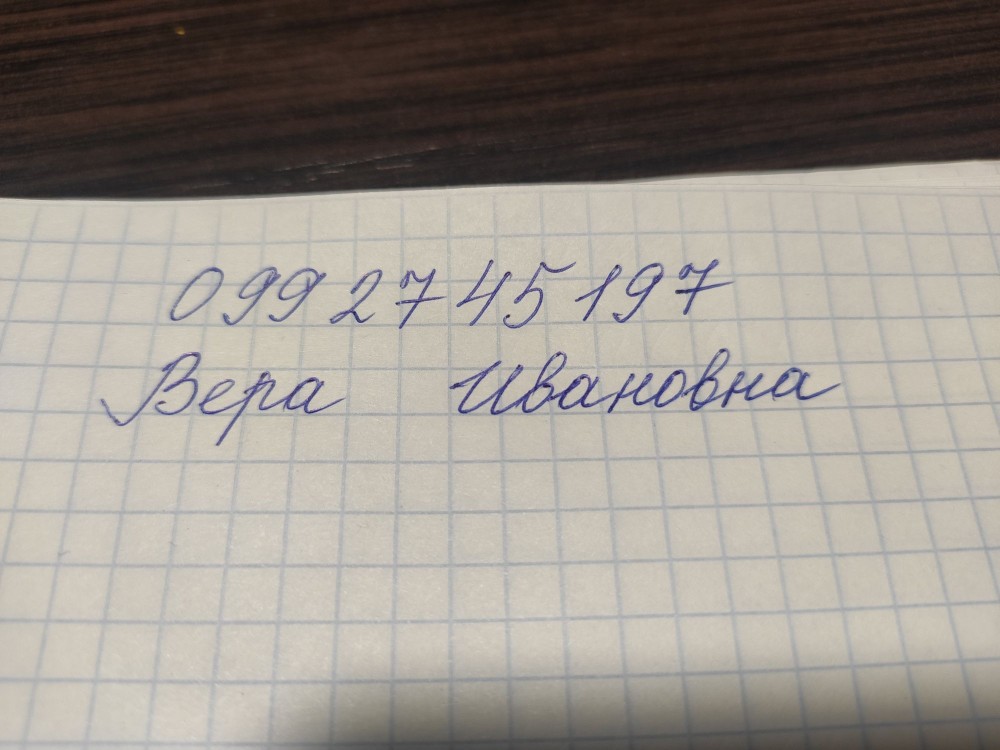 099 27 45 197
Вера Ивановна